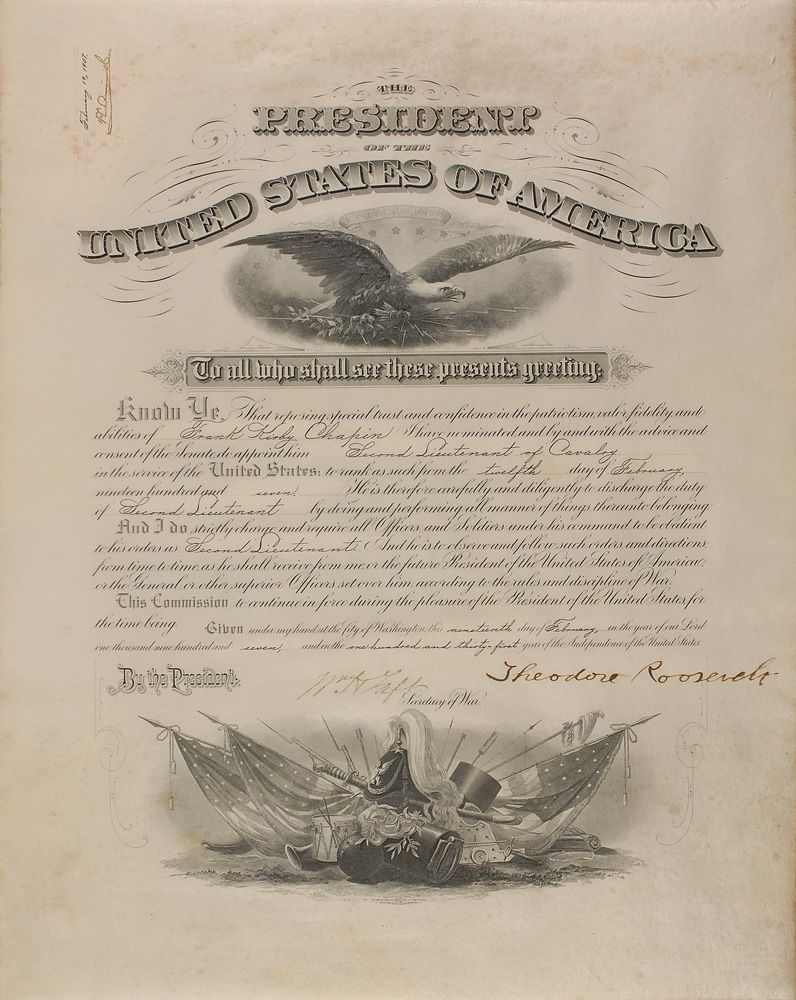 February 19, 1907.
THE
PRESIDENT
OF THE
UNITED STATES OF AMERICA
To all who shall see these presents greeting:
Know Ye, That reposing special trust and confidence in the patriotism, valor, fidelity and
abilities of Frank Kirby Chapin I have nominated, and by and with the advice and
consent of the Senate do appoint him Second Lieutenant of Cavalry
in the service of the United States: to rank as such from the twelfth day of February,
nineteen hundred and seven. He is therefore carefully and diligently to discharge the duty
of Second Lieutenant by doing and performing all manner of things thereunto belonging
And I do strictly charge and require all Officers and Soldiers under his command to be obedient
to his orders as Second Lieutenant. And he is to observe and follow such orders and directions
from time to time, as he shall receive from me, or the future President of the United States of America,
or the General or other superior Officers set over him, according to the rules and discipline of War.
This Commission to continue in force during the pleasure of the President of the United States, for
the time being.
Given under my hand at the City of Washington, this nineteenth day of February, in the year of our Lord
one thousand nine hundred and seven, and in the one hundred and thirty-first year of the Independence of the United States.
By the President:
Wm H Taft
Theodore Roosevelt
Secretary of War.